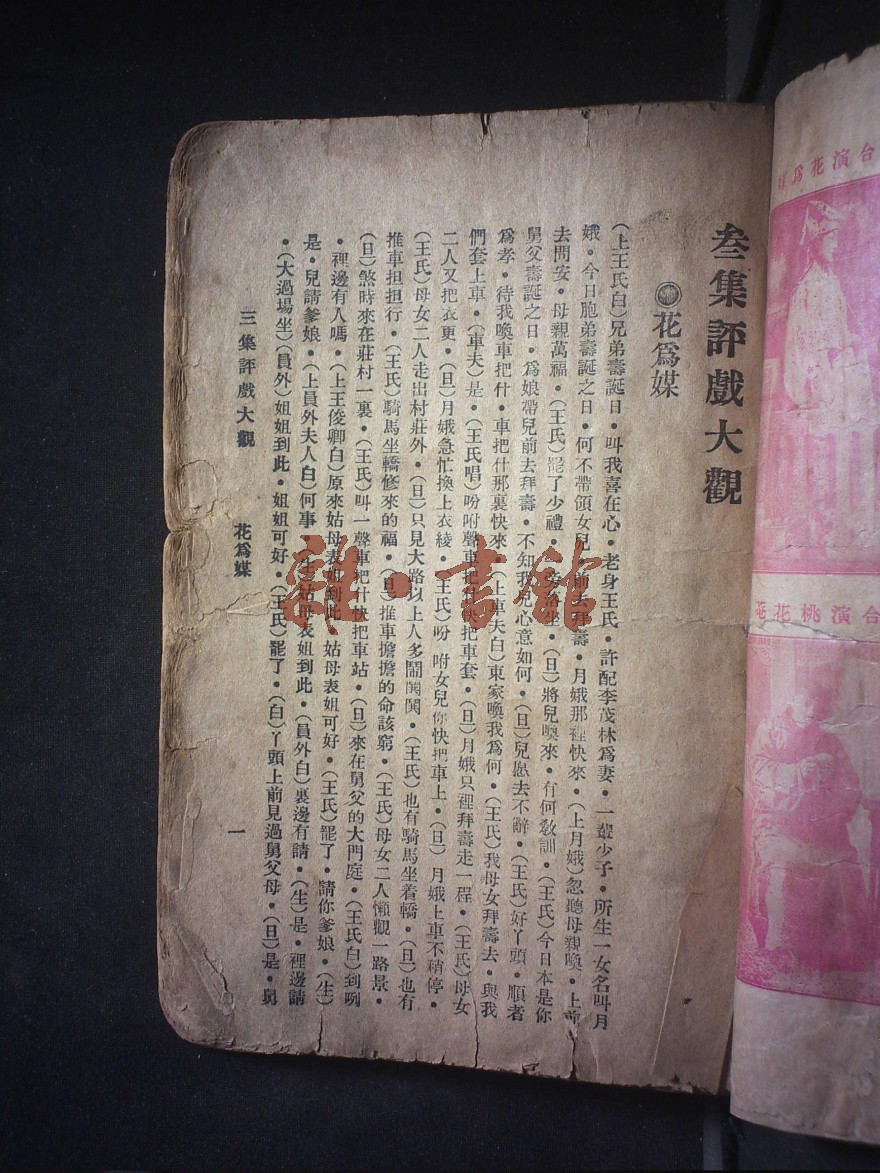 叁集評戲大觀
花爲媒
(上王氏白)兄弟壽誕日•叫我喜在心•老身王氏•許配李茂林爲妻•一輩少子•所生一女名叫月
娥•今日胞弟壽誕之日•何不帶領女兒•前去拜壽•月娥那裡快來•(上月娥)忽聽母親喚•上前
去問安•母親萬福•(王氏)罷了少禮•坐•(旦)將兒喚來•有何敎訓•(王氏)今日本是你
舅父壽誕之日•爲娘帶兒前去拜壽•不知我兒心意如何•(旦)兒愿去不辭•(王氏)好丫頭•順者
爲孝•待我喚車把什•車把什那裏快來•(上車夫白)東家喚我爲何•(王氏)我母女拜壽去•與我
們套上車•(車夫)是•(王氏唱)吩咐聲車把什快把車套•(旦)月娥只裡拜壽走一程•(王氏)母女
二人又把衣更•(旦)月娥急忙換上衣綾•(王氏)吩咐女兒你快把車上•(旦)月娥上車不稍停•
(王氏)母女二人走出村莊外•(旦)只見大路以上人多鬧闐闐•(王氏)也有騎馬坐着轎•(旦)也有
推車担担行•(王氏)騎馬坐轎修來的福•(旦)推車擔擔的命該窮•(王氏)母女二人懶觀一路景•
(旦)煞時來在莊村一裏•(王氏)叫一聲車把什快把車站•(旦)來在舅父的大門庭•(王氏白)到咧
•裡邊有人嗎•(上王俊卿白)原來姑母表姐到此•姑母表姐可好•(王氏)罷了•請你爹娘•(生)
是•兒請爹娘•(上員外夫人白)何事•(生)姑母表姐到此•(員外白)裏邊有請•(生)是•裡邊請
•(大過場坐)(員外)姐姐到此•姐姐可好•(王氏)罷了•(白)丫頭上前見過舅父母•(旦)是•舅
三集評戲大觀
花爲媒
一
台演花爲
台演桃花菴
雜•書館